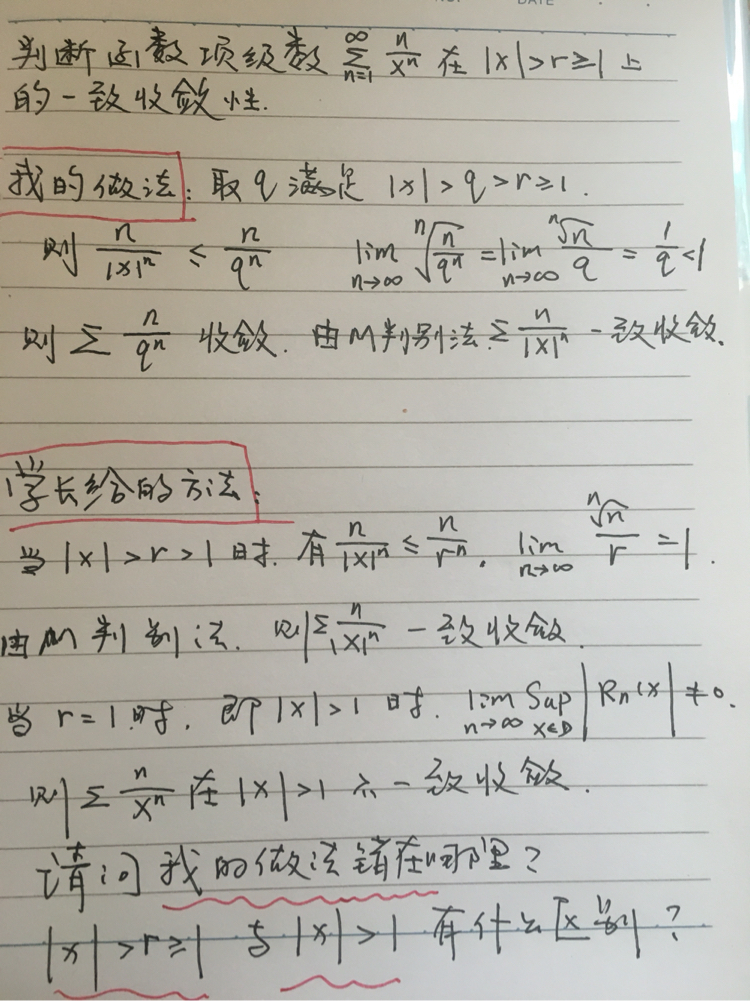 判断函数项级数 $\sum_{n=1}^{\infty} \frac{n}{x^n}$ 在 |x|>r≥1 上
的一致收敛性.
我的做法: 取 q 满足 |x|>q>r≥1.
则 $\frac{n}{|x|^n} \leq \frac{n}{q^n}$ $\lim_{n\to\infty} \sqrt[n]{\frac{n}{q^n}} = \lim_{n\to\infty} \frac{\sqrt[n]{n}}{q} = \frac{1}{q} < 1$
则 $\sum \frac{n}{q^n}$ 收敛. 由M判别法 $\sum \frac{n}{|x|^n}$ 一致收敛.
学长给的方法:
当 |x|>r>1 时. 有 $\frac{n}{|x|^n} \leq \frac{n}{r^n}$. $\lim_{n\to\infty} \frac{\sqrt[n]{n}}{r} = 1$.
由M判别法. 则 $\sum \frac{n}{|x|^n}$ 一致收敛.
当 r=1 时. 即 |x|>1 时. $\lim_{n\to\infty} \sup_{x\in D} |R_n(x)| \neq 0$.
则 $\sum \frac{n}{x^n}$ 在 |x|>1 不一致收敛.
请问我的做法错在哪里?
|x|>r≥1 与 |x|>1 有什么区别?